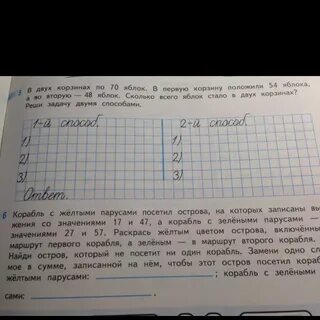 5 В двух корзинах по 70 яблок. В первую корзину положили 54 яблока,
а во вторую — 48 яблок. Сколько всего яблок стало в двух корзинах?
Реши задачу двумя способами.
1-й способ. 2-й способ.
1) 1)
2) 2)
3) 3)
Ответ.
6 Корабль с жёлтыми парусами посетил острова, на которых записаны вы-
жения со значениями 17 и 47, а корабль с зелёными парусами —
значениями 27 и 57. Раскрась жёлтым цветом острова, включённы
маршрут первого корабля, а зелёным — в маршрут второго корабля.
Найди остров, который не посетил ни один корабль. Замени одно сла-
мое в сумме, записанной на нём, чтобы этот остров посетил кораб
жёлтыми парусами: ; корабль с зелёными
сами: